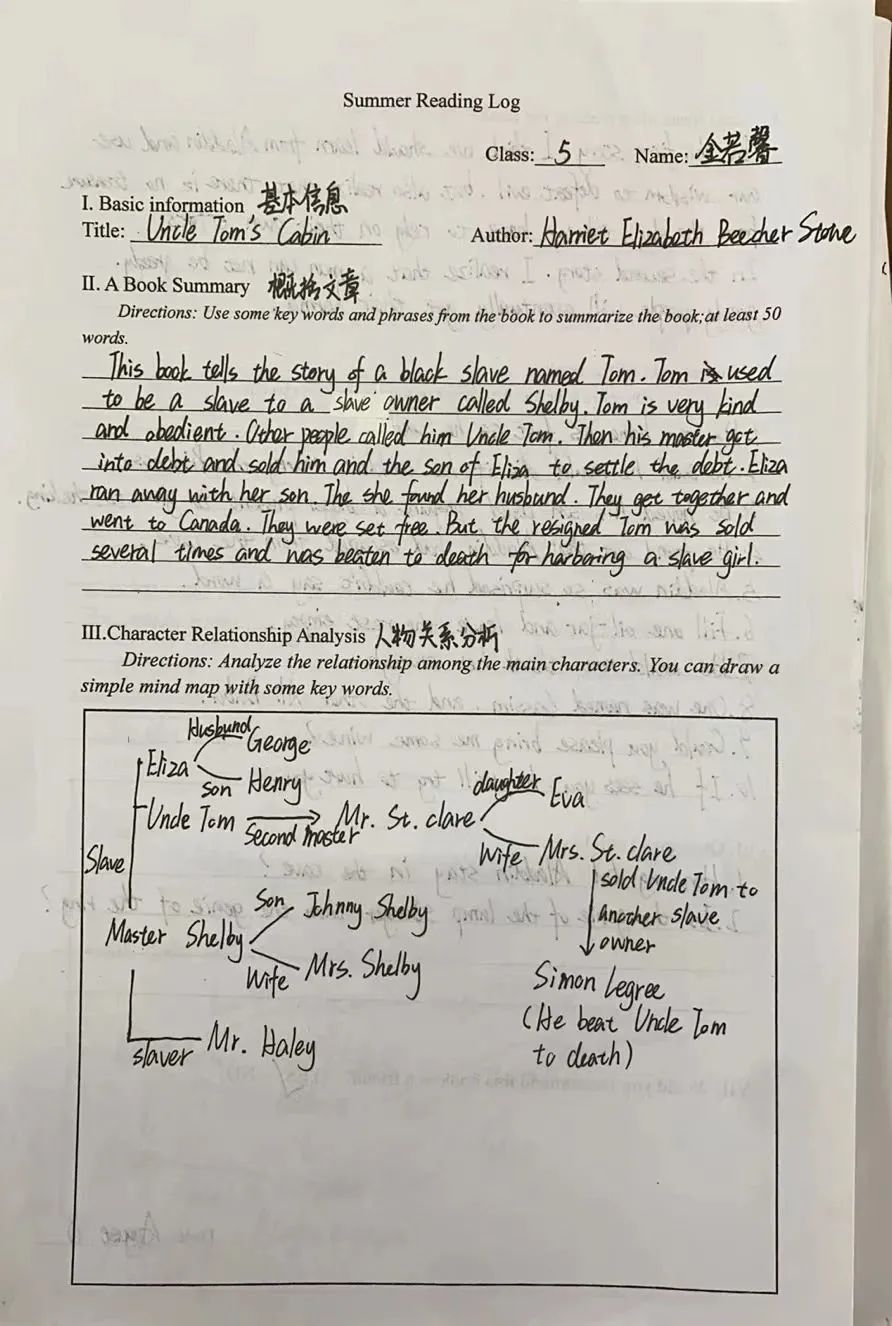 Summer Reading Log
Class: 5 Name: 金若馨
I. Basic information 基本信息
Title: Uncle Tom's Cabin Author: Harriet Elizabeth Beecher Stowe
II. A Book Summary 概括文章
Directions: Use some key words and phrases from the book to summarize the book, at least 50
words.
This book tells the story of a black slave named Tom. Tom is used
to be a slave to a slave owner called Shelby. Tom is very kind
and obedient. Other people called him Uncle Tom. Then his master got
into debt and sold him and the son of Eliza to settle the debt. Eliza
ran away with her son. The she found her husbund. They get together and
went to Canada. They were set free. But the resigned Tom was sold
several times and was beaten to death for harboring a slave girl.
III.Character Relationship Analysis 人物关系分析
Directions: Analyze the relationship among the main characters. You can draw a
simple mind map with some key words.
Husbund George
Eliza
son Henry
daughter Eva
Uncle Tom Second master Mr. St. clare
Wife Mrs. St. clare
Slave
sold Uncle Tom to
another slave
owner
Son Johnny Shelby
Master Shelby
Wife Mrs. Shelby
Simon Legree
(He beat Uncle Tom
to death)
slaver Mr. Haley